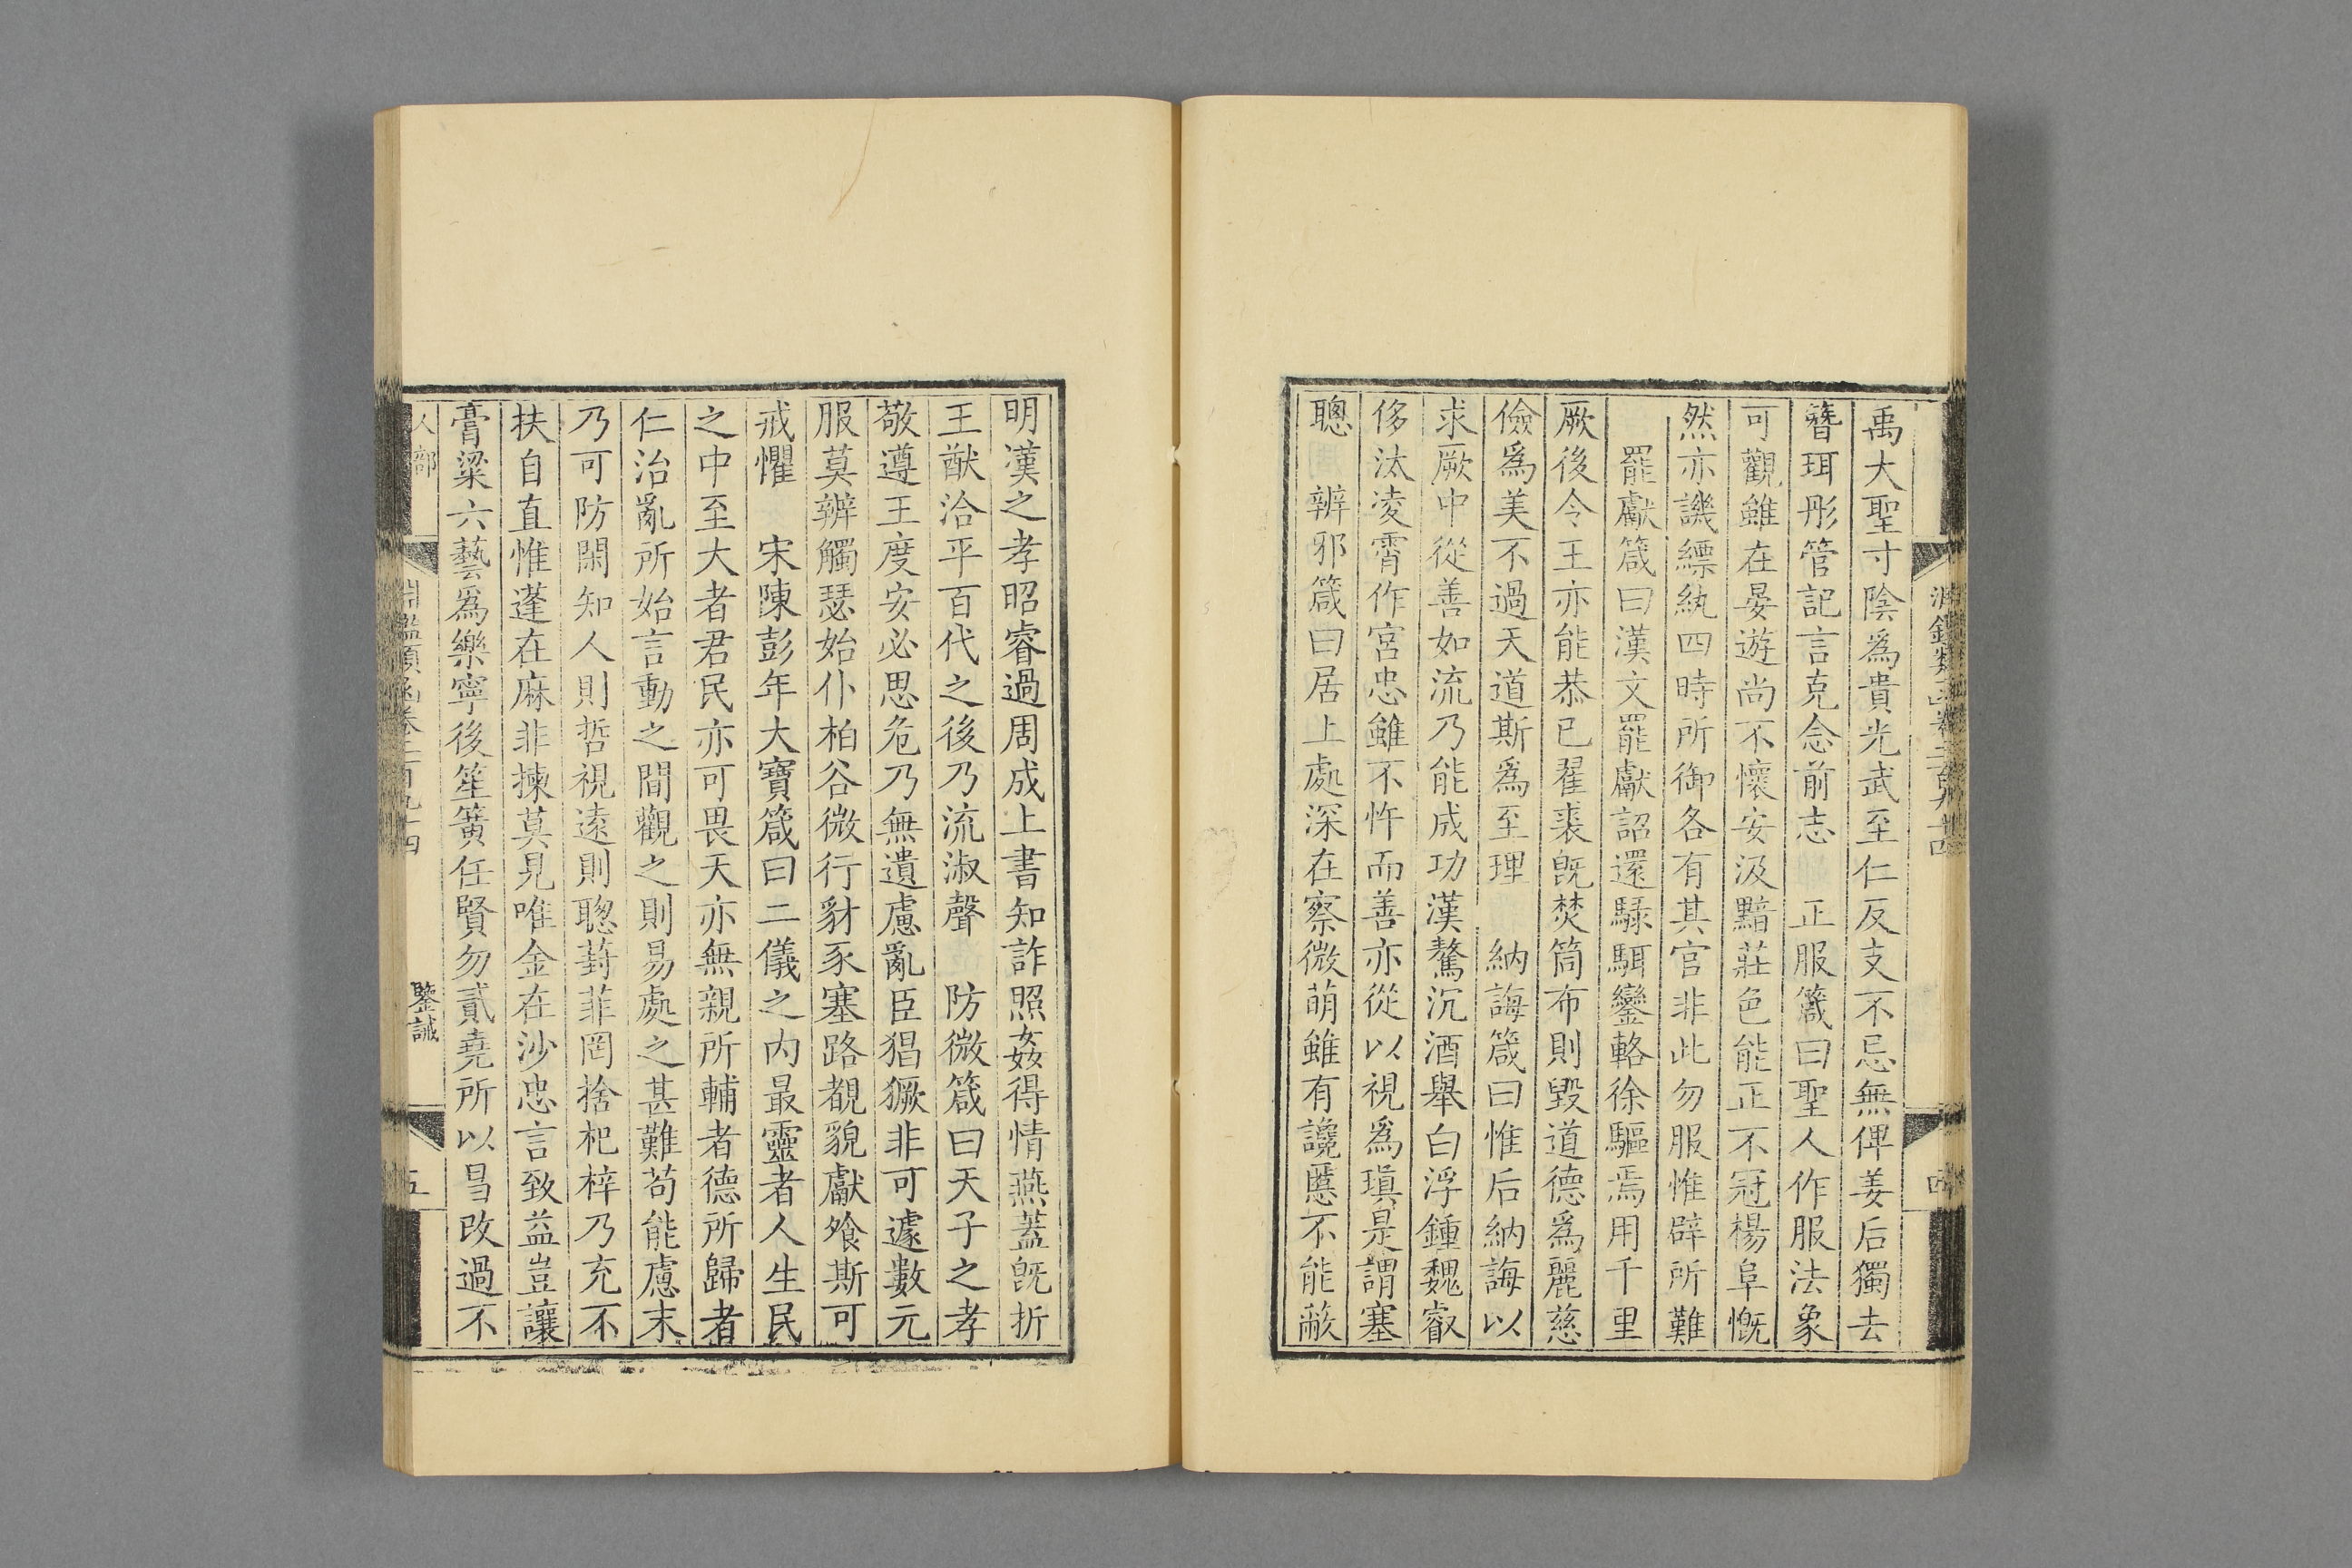 禹大聖寸陰爲貴光武至仁反支不忌無俾姜后獨去
簪珥彤管記言克念前志　正服箴曰聖人作服法象
可觀雖在晏遊尚不懷安汲黯莊色能正不冠楊阜慨
然亦譏縹紈四時所御各有其官非此勿服惟辟所難
罷獻箴曰漢文罷獻詔還騄駬鑾輅徐驅焉用千里
厥後令王亦能恭已翟裘旣焚筒布則毀道德爲麗慈
儉爲美不過天道斯爲至理　納誨箴曰惟后納誨以
求厥中從善如流乃能成功漢驁沉酒舉白浮鍾魏叡
侈汰凌霄作宮忠雖不忤而善亦從以視爲瑱是謂塞
聰　辨邪箴曰居上處深在察微萌雖有讒慝不能蔽
淵鑑類函卷二百九十四
四
明漢之孝昭睿過周成上書知詐照姦得情燕蓋旣折
王猷洽平百代之後乃流淑聲　防微箴曰天子之孝
敬遵王度安必思危乃無遺慮亂臣猖獗非可遽數元
服莫辨觸瑟始仆柏谷微行豺豕塞路覩貌獻飧斯可
戒懼　宋陳彭年大寶箴曰二儀之內最靈者人生民
之中至大者君民亦可畏天亦無親所輔者德所歸者
仁治亂所始言動之間觀之則易處之甚難苟能慮末
乃可防閑知人則哲視遠則聰葑菲罔捨杞梓乃充不
扶自直惟蓬在麻非揀莫見唯金在沙忠言致益豈讓
膏粱六藝爲樂寧後笙簧任賢勿貳堯所以昌改過不
人部
淵鑑類函卷二百九十四
鑒誡
五